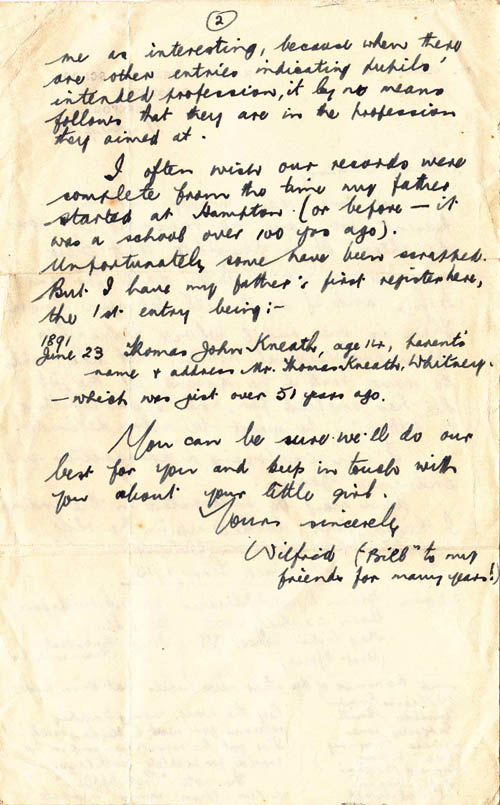 2
me as interesting, because when there
are other entries indicating pupils'
intended profession, it by no means
follows that they are in the profession
they aimed at.
I often wish our records were
complete from the time my father
started at Hampton (or before — it
was a school over 100 yrs ago).
Unfortunately some have been scrapped.
But I have my father's first register here,
the 1st entry being:-
1891
June 23 Thomas John Kneath, age 14, parent's
name & address Mr. Thomas Kneath, Whitney.
— which was just over 51 years ago.
You can be sure we'll do our
best for you and keep in touch with
you about your little girl.
Yours sincerely
Wilfrid ("Bill" to my
friends for many years!)